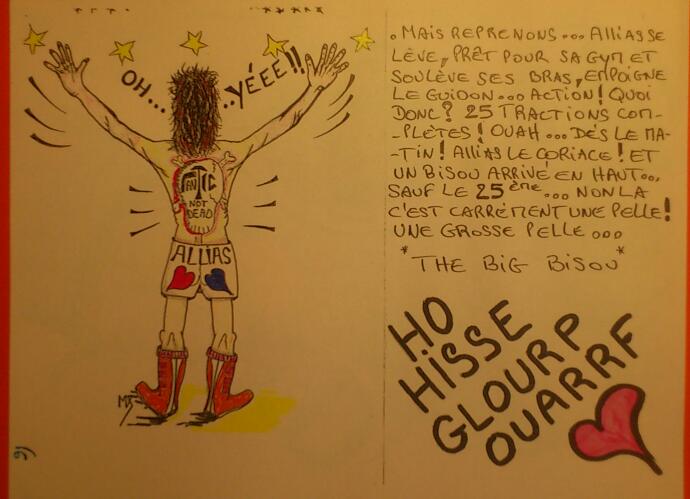 OH... ..YÉEE!!
FANTIC
NOT
DEAD
ALLIAS
MB
16
. MAIS REPRENONS... ALLIAS SE
LÈVE, PRÊT POUR SA GYM ET
SOULÈVE SES BRAS, EMPOIGNE
LE GUIDON... ACTION! QUOI
DONC? 25 TRACTIONS COM-
-PLÈTES! OUAH... DÉS LE MA-
-TIN! ALLIAS LE CORIACE! ET
UN BISOU ARRIVÉ EN HAUT...
SAUF LE 25 ÈME... NON LA
C'EST CARRÉMENT UNE PELLE!
UNE GROSSE PELLE...
* THE BIG BISOU *
HO
HISSE
GLOURP
OUARRF